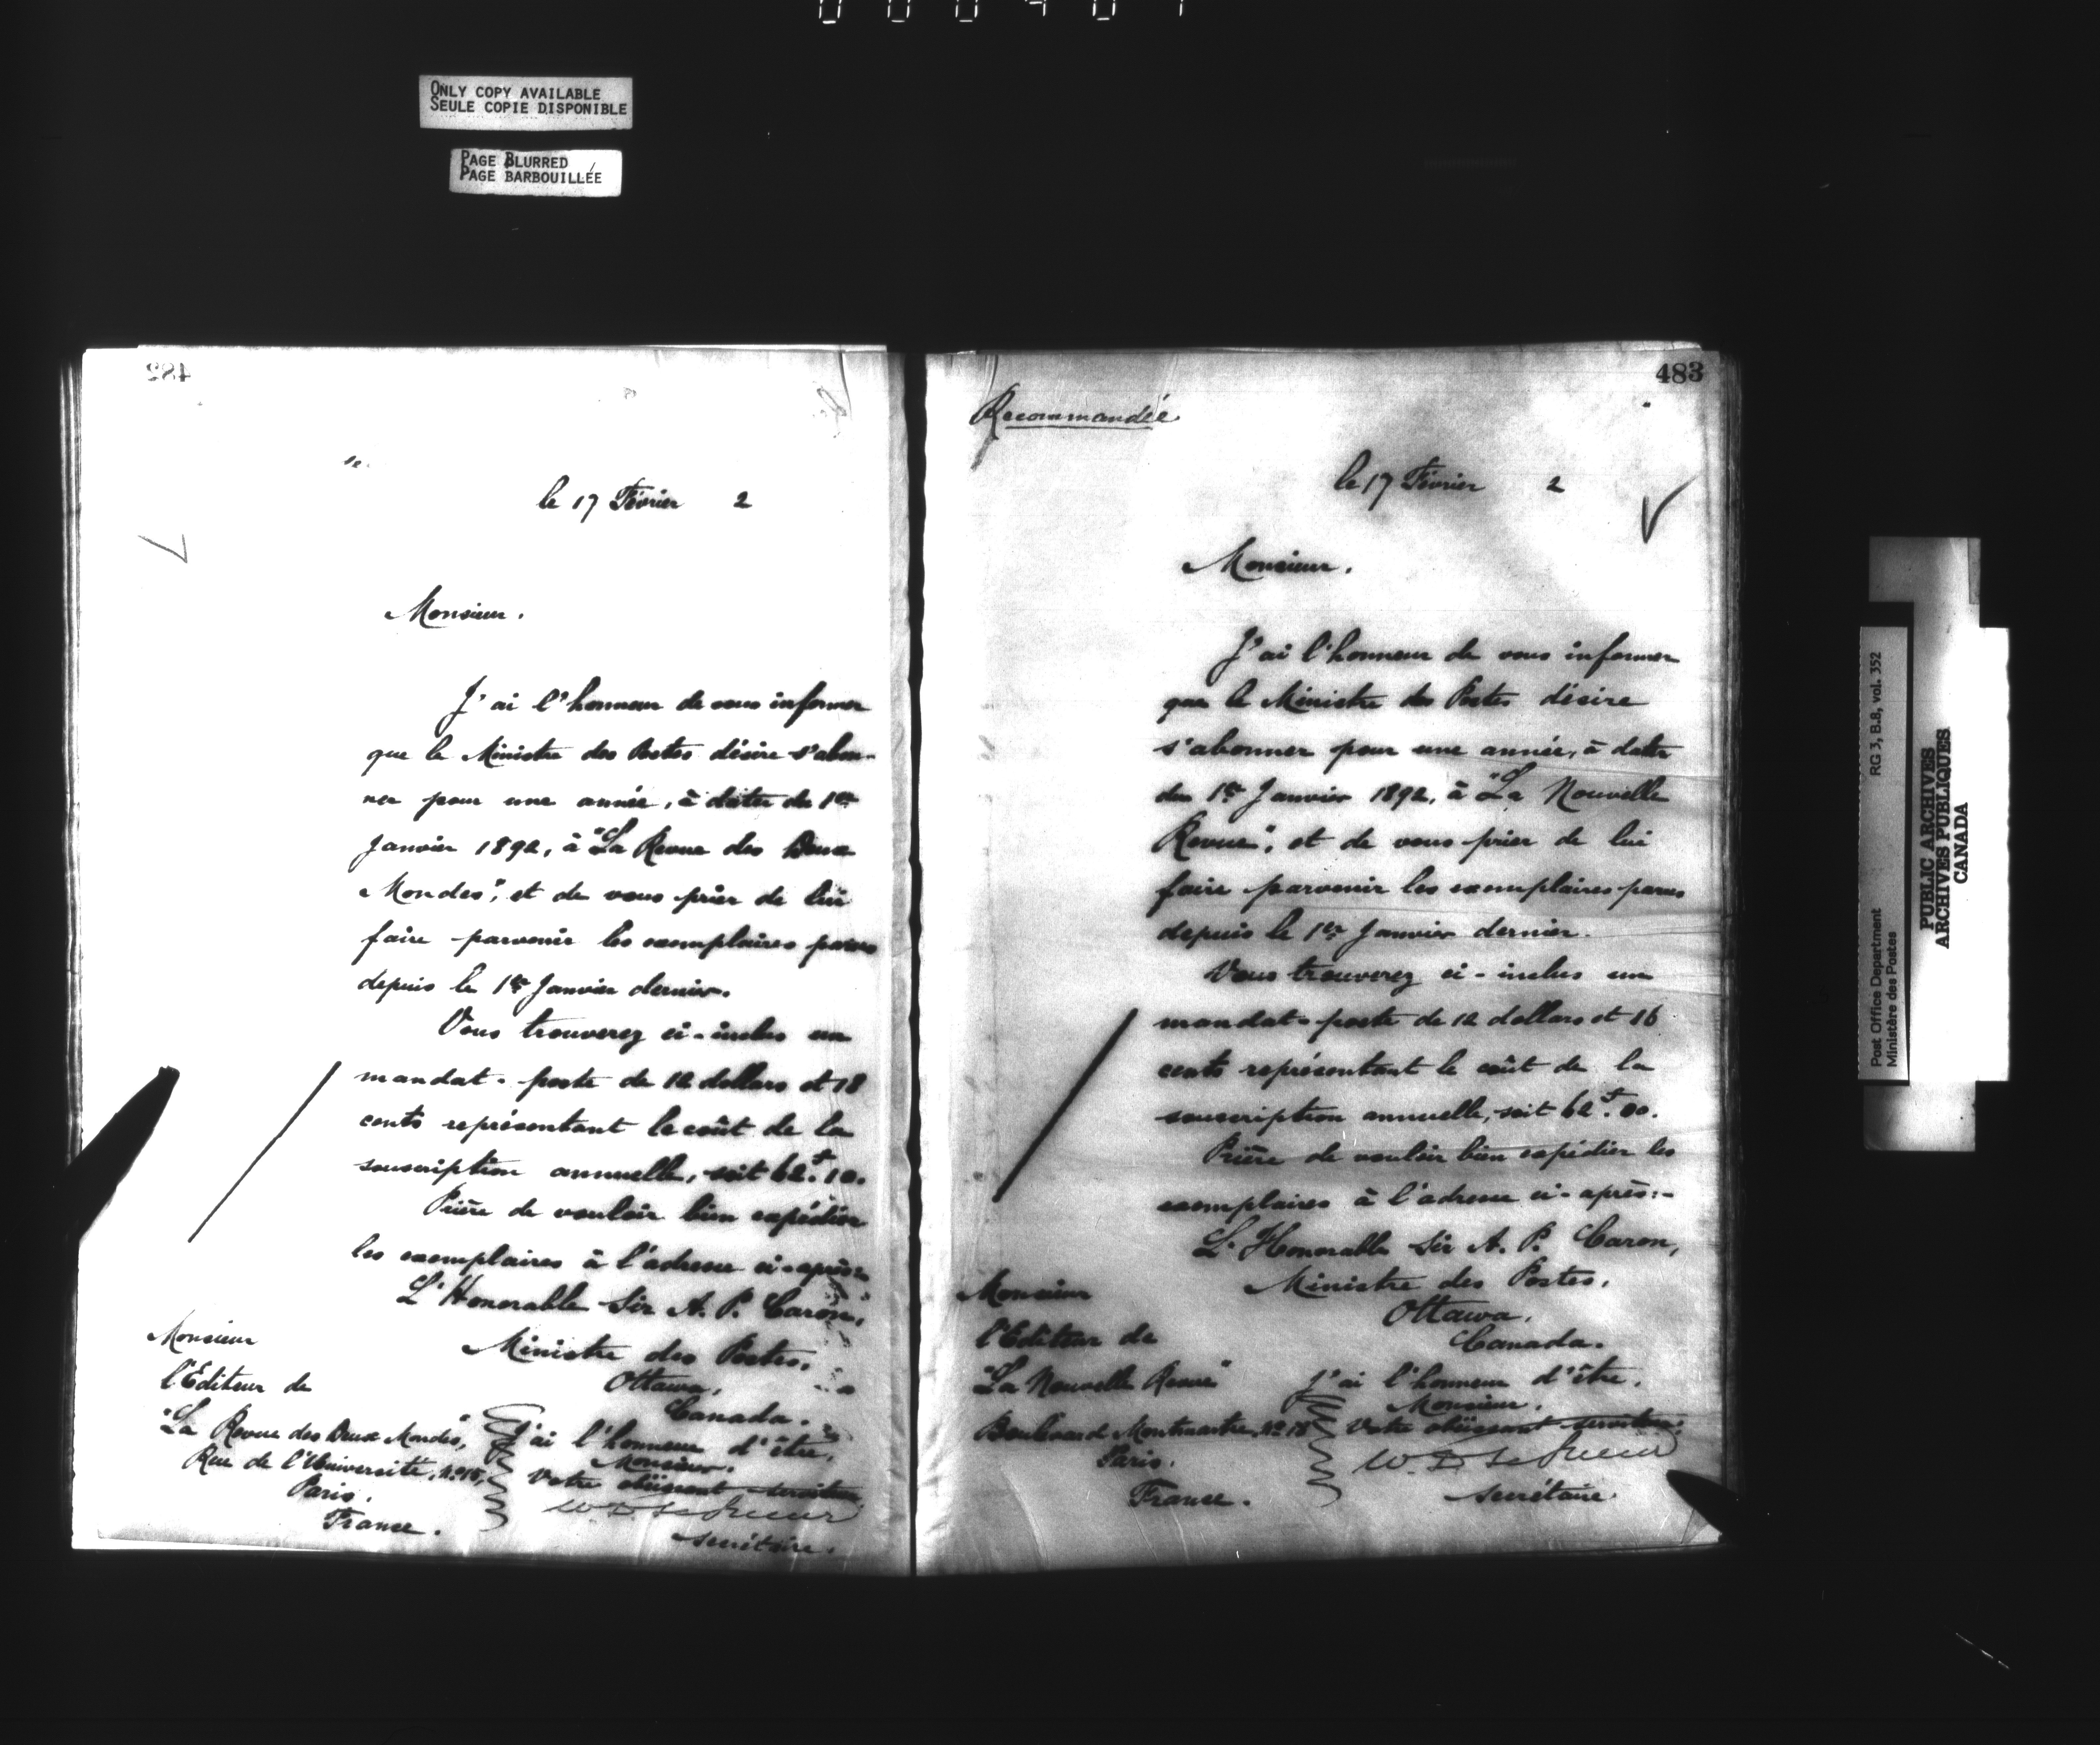 ONLY COPY AVAILABLE
SEULE COPIE DISPONIBLE
PAGE BLURRED
PAGE BARBOUILLÉE
482
le 17 Février 2
Monsieur.
J'ai l'honneur de vous informer
que le Ministre des Postes désire s'abon-
ner pour une année, à dater du 1er
Janvier 1892, à "La Revue des Deux
Mondes", et de vous prier de lui
faire parvenir les exemplaires parus
depuis le 1er Janvier dernier.
Vous trouverez ci-inclus un
mandat-poste de 12 dollars et 18
cents représentant le coût de la
souscription annuelle, soit 62.f 10.
Prière de vouloir bien expédier
les exemplaires à l'adresse ci-après:
L'Honorable Sir A. P. Caron,
Ministre des Postes,
Ottawa,
Canada.
J'ai l'honneur d'être,
Monsieur,
Votre obéissant serviteur
W. D. LeSueur
secrétaire.
Monsieur
l'Editeur de
"La Revue des Deux Mondes",
Rue de l'Université, No 15,
Paris.
France.
483
Recommandée
le 17 Février 2
Monsieur.
J'ai l'honneur de vous informer
que le Ministre des Postes désire
s'abonner pour une année, à dater
du 1er Janvier 1892, à "La Nouvelle
Revue", et de vous prier de lui
faire parvenir les exemplaires parus
depuis le 1er Janvier dernier.
Vous trouverez ci-inclus un
mandat-poste de 12 dollars et 16
cents représentant le coût de la
souscription annuelle, soit 62.f 00.
Prière de vouloir bien expédier les
exemplaires à l'adresse ci-après:-
L'Honorable Sir A. P. Caron,
Ministre des Postes,
Ottawa,
Canada.
J'ai l'honneur d'être,
Monsieur,
Votre obéissant serviteur,
W. D. LeSueur
secrétaire
Monsieur
l'Editeur de
"La Nouvelle Revue"
Boulevard Montmartre, No 18
Paris.
France.
Post Office Department
Ministère des Postes
RG 3, B.8, vol. 352
PUBLIC ARCHIVES
ARCHIVES PUBLIQUES
CANADA